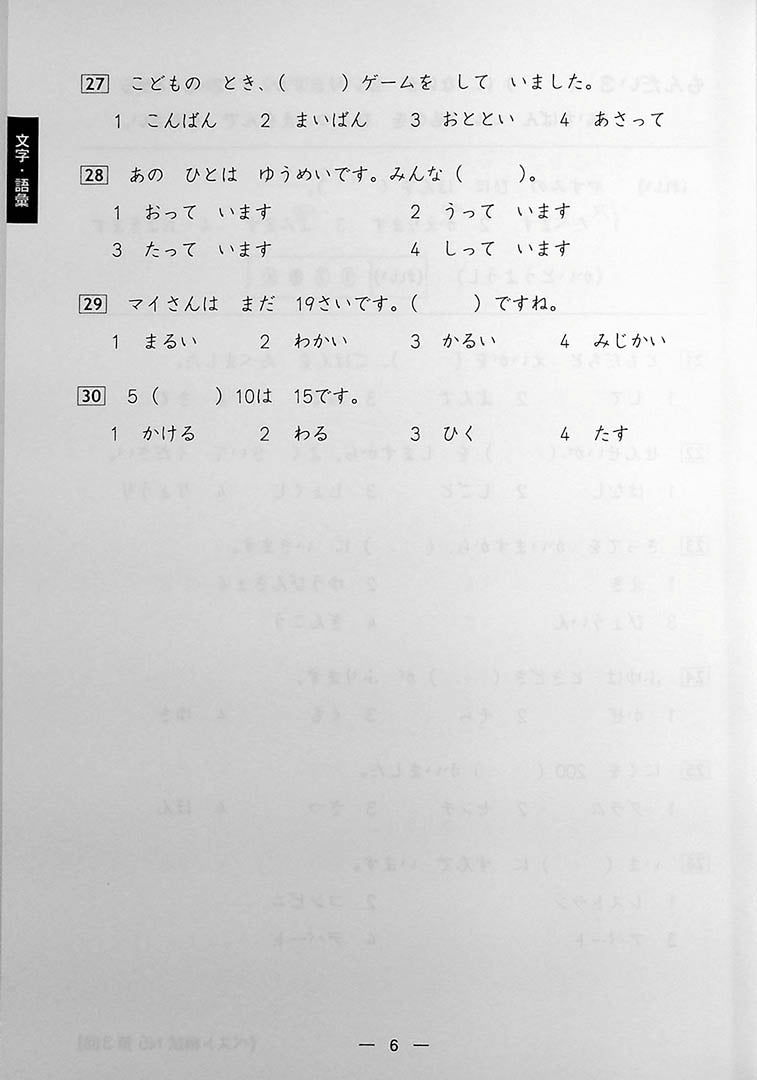 文字・語彙
27 こどもの とき、( )ゲームを して いました。
1 こんばん 2 まいばん 3 おととい 4 あさって
28 あの ひとは ゆうめいです。みんな( )。
1 おって います 2 うって います
3 たって います 4 しって います
29 マイさんは まだ 19さいです。( )ですね。
1 まるい 2 わかい 3 かるい 4 みじかい
30 5( )10は 15です。
1 かける 2 わる 3 ひく 4 たす
— 6 —